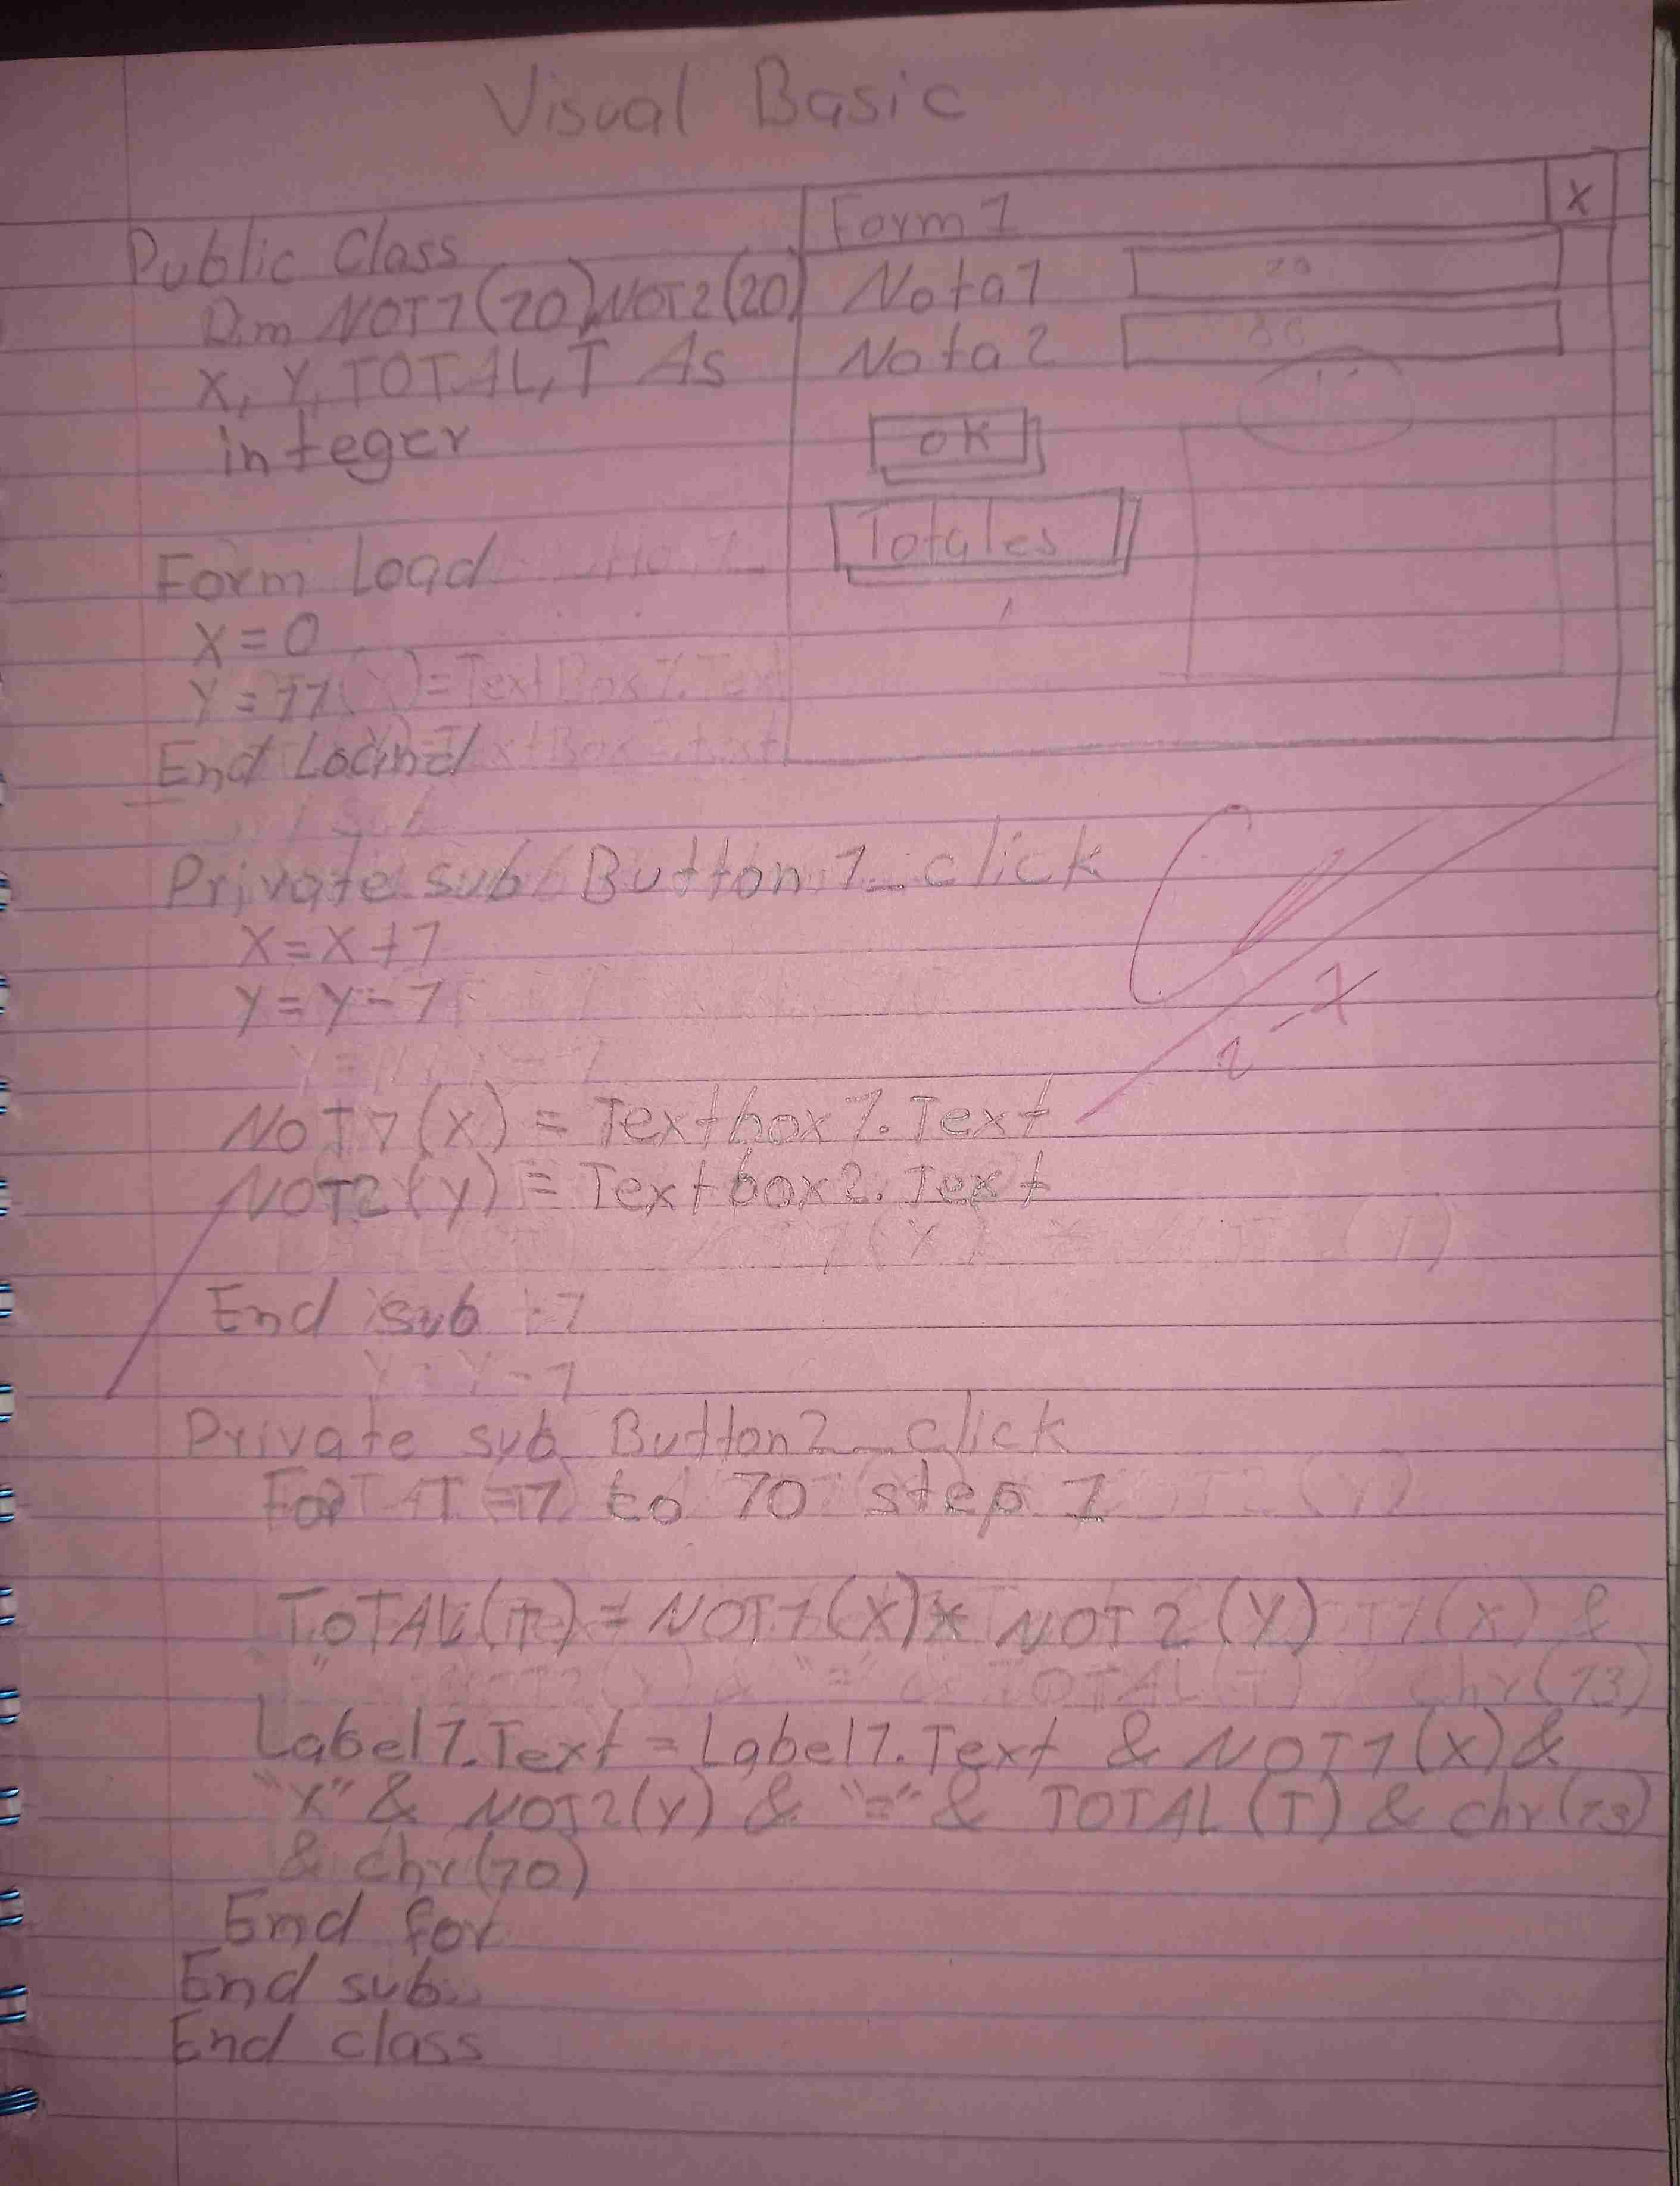 Visual Basic
Public Class
Dim NOT1(20), NOT2(20)
X, Y, TOTAL, T As
integer
Form Load
X = 0
Y = 11
End Load
Form 1
X
Nota1
20
Nota2
OK
Totales
Private sub Button1_click
X = X + 1
Y = Y - 1
NOT1(X) = Textbox1.Text
NOT2(Y) = Textbox2.Text
End sub
Private sub Button2_click
For T = 1 to 10 step 1
TOTAL(T) = NOT1(X) * NOT2(Y)
Label1.Text = Label1.Text & NOT1(X) &
"X" & NOT2(Y) & "=" & TOTAL(T) & chr(13)
& chr(10)
End for
End sub
End class